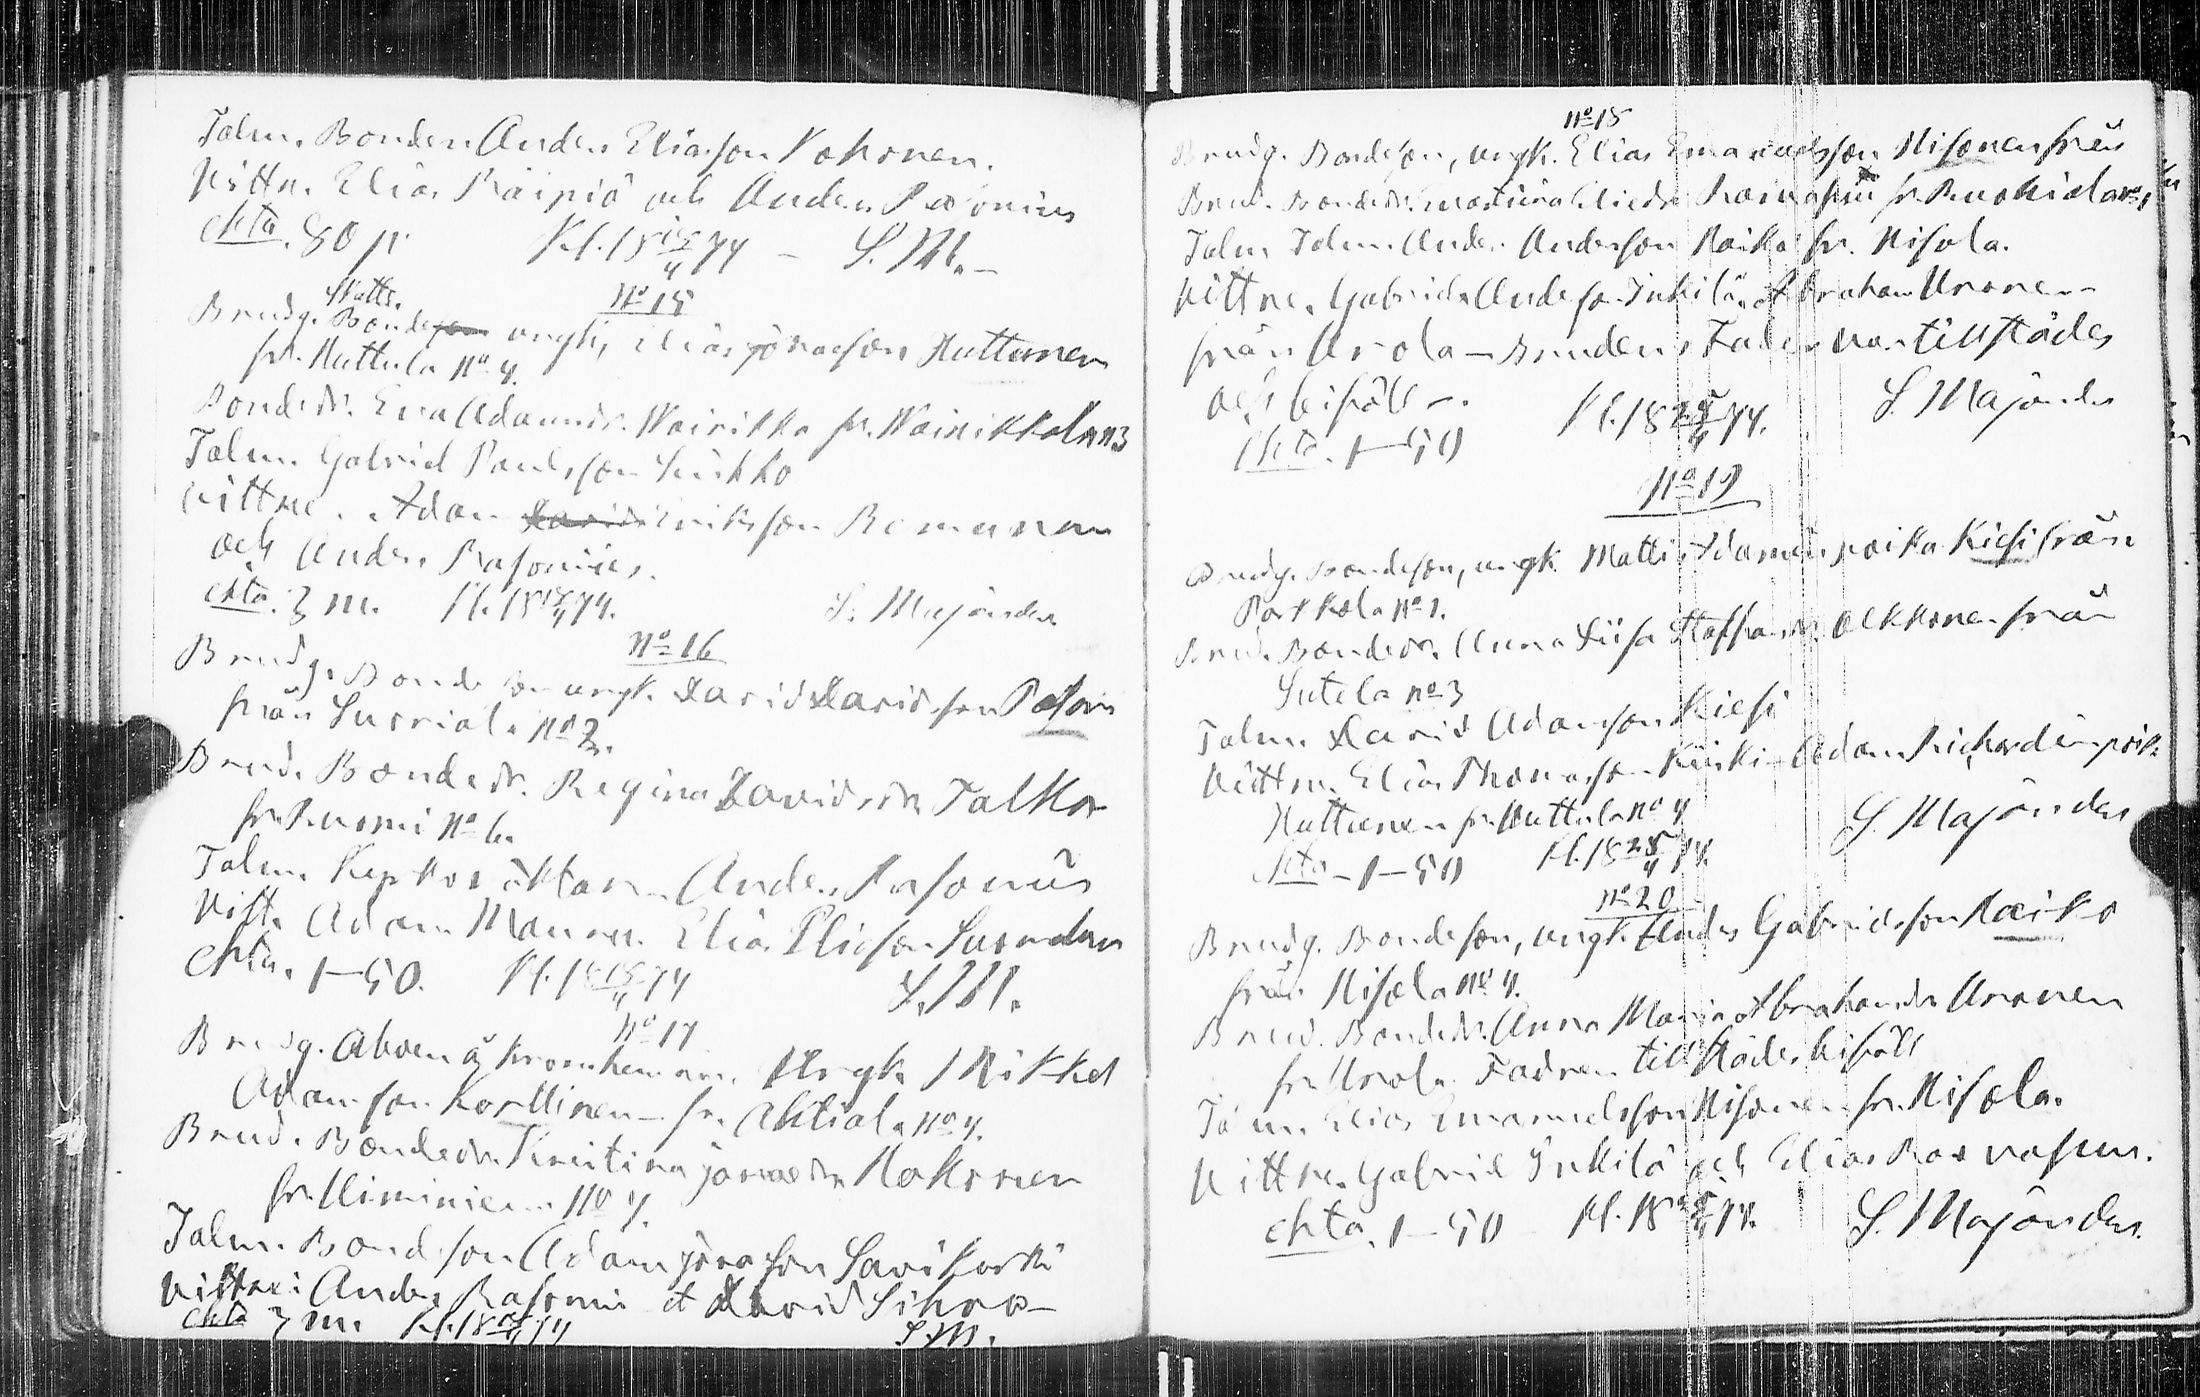 Talm. Bonden Anders Eliasson Kokonen.
Vittn. Elias Räipiö och Anders Rasonius
ekta. 80 p. Kl. 18 18/4 74 – S. M. –
No 15
Skatte
Brudg. Bondeson ungk, Elias Jönasson Huttunen
fr. Huttula No 4.
Bonded. Eva Adamsdr. Wairikko fr. Wainikkala N3
Talm. Gabriel Paulsson Siukko
Vittne. Adam David Eriksson Romunen
och Anders Rasonius.
ekta. 3 m. Kl. 18 18/4 74. S. Majander
No 16
Brudg. Bondeson ungk. David Davidsson
från Suuriala No 2.
Brud. Bondedr. Regina Davidsdr Talkka
fr. Ruomi No 6.
Talm. Kyrkoväktaren Anders Rasonius
Vitt. Adam Elias Eliasson
ekta. 1–50. Kl. 18 18/4 74 S. M.
No 17
Brudg. Aboen å Kronohemman. Ungk. Mikkel
Adamsson Korttinen – fr. Ahtiala No 4.
Brud. Bondedr. Kristina Jonaedr. Kokonen
fr. No 4.
Talm. Bondeson Adam Jönasson Savikurki
Vittne: Anders Rasonius et David Sihvo –
ekta 3 m. Kl. 18 18/4 74 S. M.
No 18
Brudg. Bondeson, ungk. Elias Emanuelsson Hisonen från
Brud. Bondedr. Kristina Eliedr. fr. Ruokiala No 1
Talm. Talm. Anders Andersson Raiko fr. Hisola.
Vittne. Gabriel Andersson Inkilä, Abraham Uronen
från Urola – Brudens Fader var tillstädes
och biföll –.
ekta. 1–50 Kl. 18 25/4 74. S. Majander
No 19
Brudg. Bondeson, ungk. Matti Adamin poika Kiesi från
Parkkola No 1.
Brud. Bondedr. Anna Liisa Staffansdr. Olkkonen från
Sutela No 3
Talm. David Adamsson Kiesi
Vittn. Elias Thomasson Kiiski – Adam Richardin poik.
Huttunen fr. Huttula No 4
ekta – 1–50 Kl. 18 25/4 74. S. Majander
No 20
Brudg. Bondeson, ungk. Anders Gabrielsson Raiko
från Hisola No 4.
Brud. Bondedr. Anna Maria Abrahamsdr Uronen
fr. Urola. Fadren tillstädes biföll
Talm. Elias Emanuelsson Hisonen fr. Hisola.
Vittne. Gabriel Inkilä och Elias
ekta. 1–50 Kl. 18 25/4 74. S. Majander.